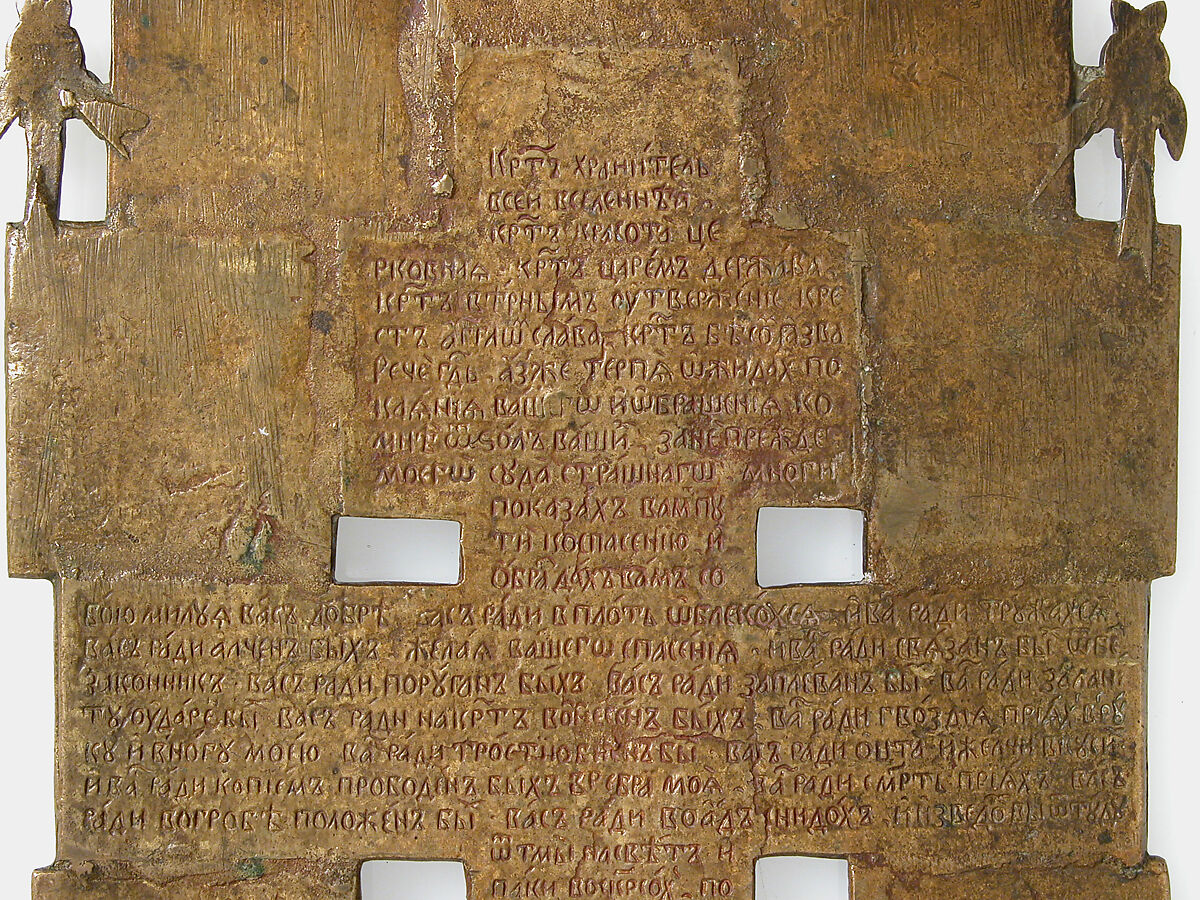 КРТ҃Ъ ХРАНИ́ТЕЛЬ
ВСЕЙ ВСЕЛЕННѢЙ
КРТ҃Ъ КРАСОТА ЦЕ
РКОВНАЯ КРТ҃Ъ ЦАРЕ́МЪ ДЕРЖАВА
КРТ҃Ъ ВѢ́РНЫМЪ ОУТВЕРЖЕ́НІЕ КРЕ
СТЪ СЛА́ВА КРТ҃Ъ БѢСО́ ІАЗВА
РЕЧЀ ГДЬ А́ЗЖЕ ТЕРПѦ̀ Ѡ̓ЖИДАХ ПО
КАѦ́НИѦ ВАШЕГѠ И҆ Ѡ҆БРАЩЕ́НІѦ КО
МНѢ̀ Ѿ ЅОЛЪ ВАШИ ЗАНѐ ПРЕ́ЖДЕ
МОЕГѠ СУДА̀ СТРА́ШНАГѠ МНО́ГИ
ПОКАЗА́ХЪ ВАМ ПУ
ТИ КОСПАСЕ́НІЮ И҆
ОБРАДАХЪ ВАМЪ СО
БО́Ю МИЛУѦ ВАСЪ ДОБРѢ̀ ВАСЪ РА́ДИ ВПЛОТЬ Ѡ҆БЛЕКО́ХСѦ И҆ ВА РА́ДИ ТРУЖА́ХСѦ
ВАСЪ РА́ДИ А҆ЛЧЕНЪ БЫ́ХЪ ЖЕЛА́Ѧ ВА́ШЕГѠ СПАСЕ́НІѦ И҆ ВА РА́ДИ СВѦ́ЗАНЪ БЫ Ѡ҆ БЕ
ЗАКО́ННИКЪ ВАСЪ РА́ДИ ПОРУ́ГАНЪ БЫ́ХЪ ВАСЪ РА́ДИ ЗАПЛЕ́ВАНЪ БЫ ВА РА́ДИ ЗАЛАНИ
ТУ ОУДА́РЕ БЫ ВАСЪ РА́ДИ НАКРТ҃Ъ ВОЗНЕСЕ́НЪ БЫ́ХЪ ВА РА́ДИ ГВО́ЗДІѦ ПРІѦ́Х ВРУ
КУ И҆ ВНО́ГУ МОЕЮ̀ ВА РА́ДИ ТРО́СТІЮ БІЕ́НЪ БЫ ВАСЪ РА́ДИ ОЦТА И҆ ЖЕЛЧИ ВКУСИ
И҆ ВА РА́ДИ КОПІЕ́МЪ ПРОБОДЕ́НЪ БЫХЪ ВРЕ́БРА МОѦ̀ ВА РА́ДИ СМЕРТЬ ПРІѦ́ХЪ ВАСЪ
РА́ДИ ВОГРО́БѢ ПОЛОЖЕ́НЪ БЫ ВАСЪ РА́ДИ ВОАДЪ СНИДО́ХЪ И҆ ИЗВЕДО ВЫ ѾТУДУ
Ѿ ТМЫ̀ НАСВѢ́ТЪ И҆
ПА́КИ ВОСКРЕСО́Х ПО